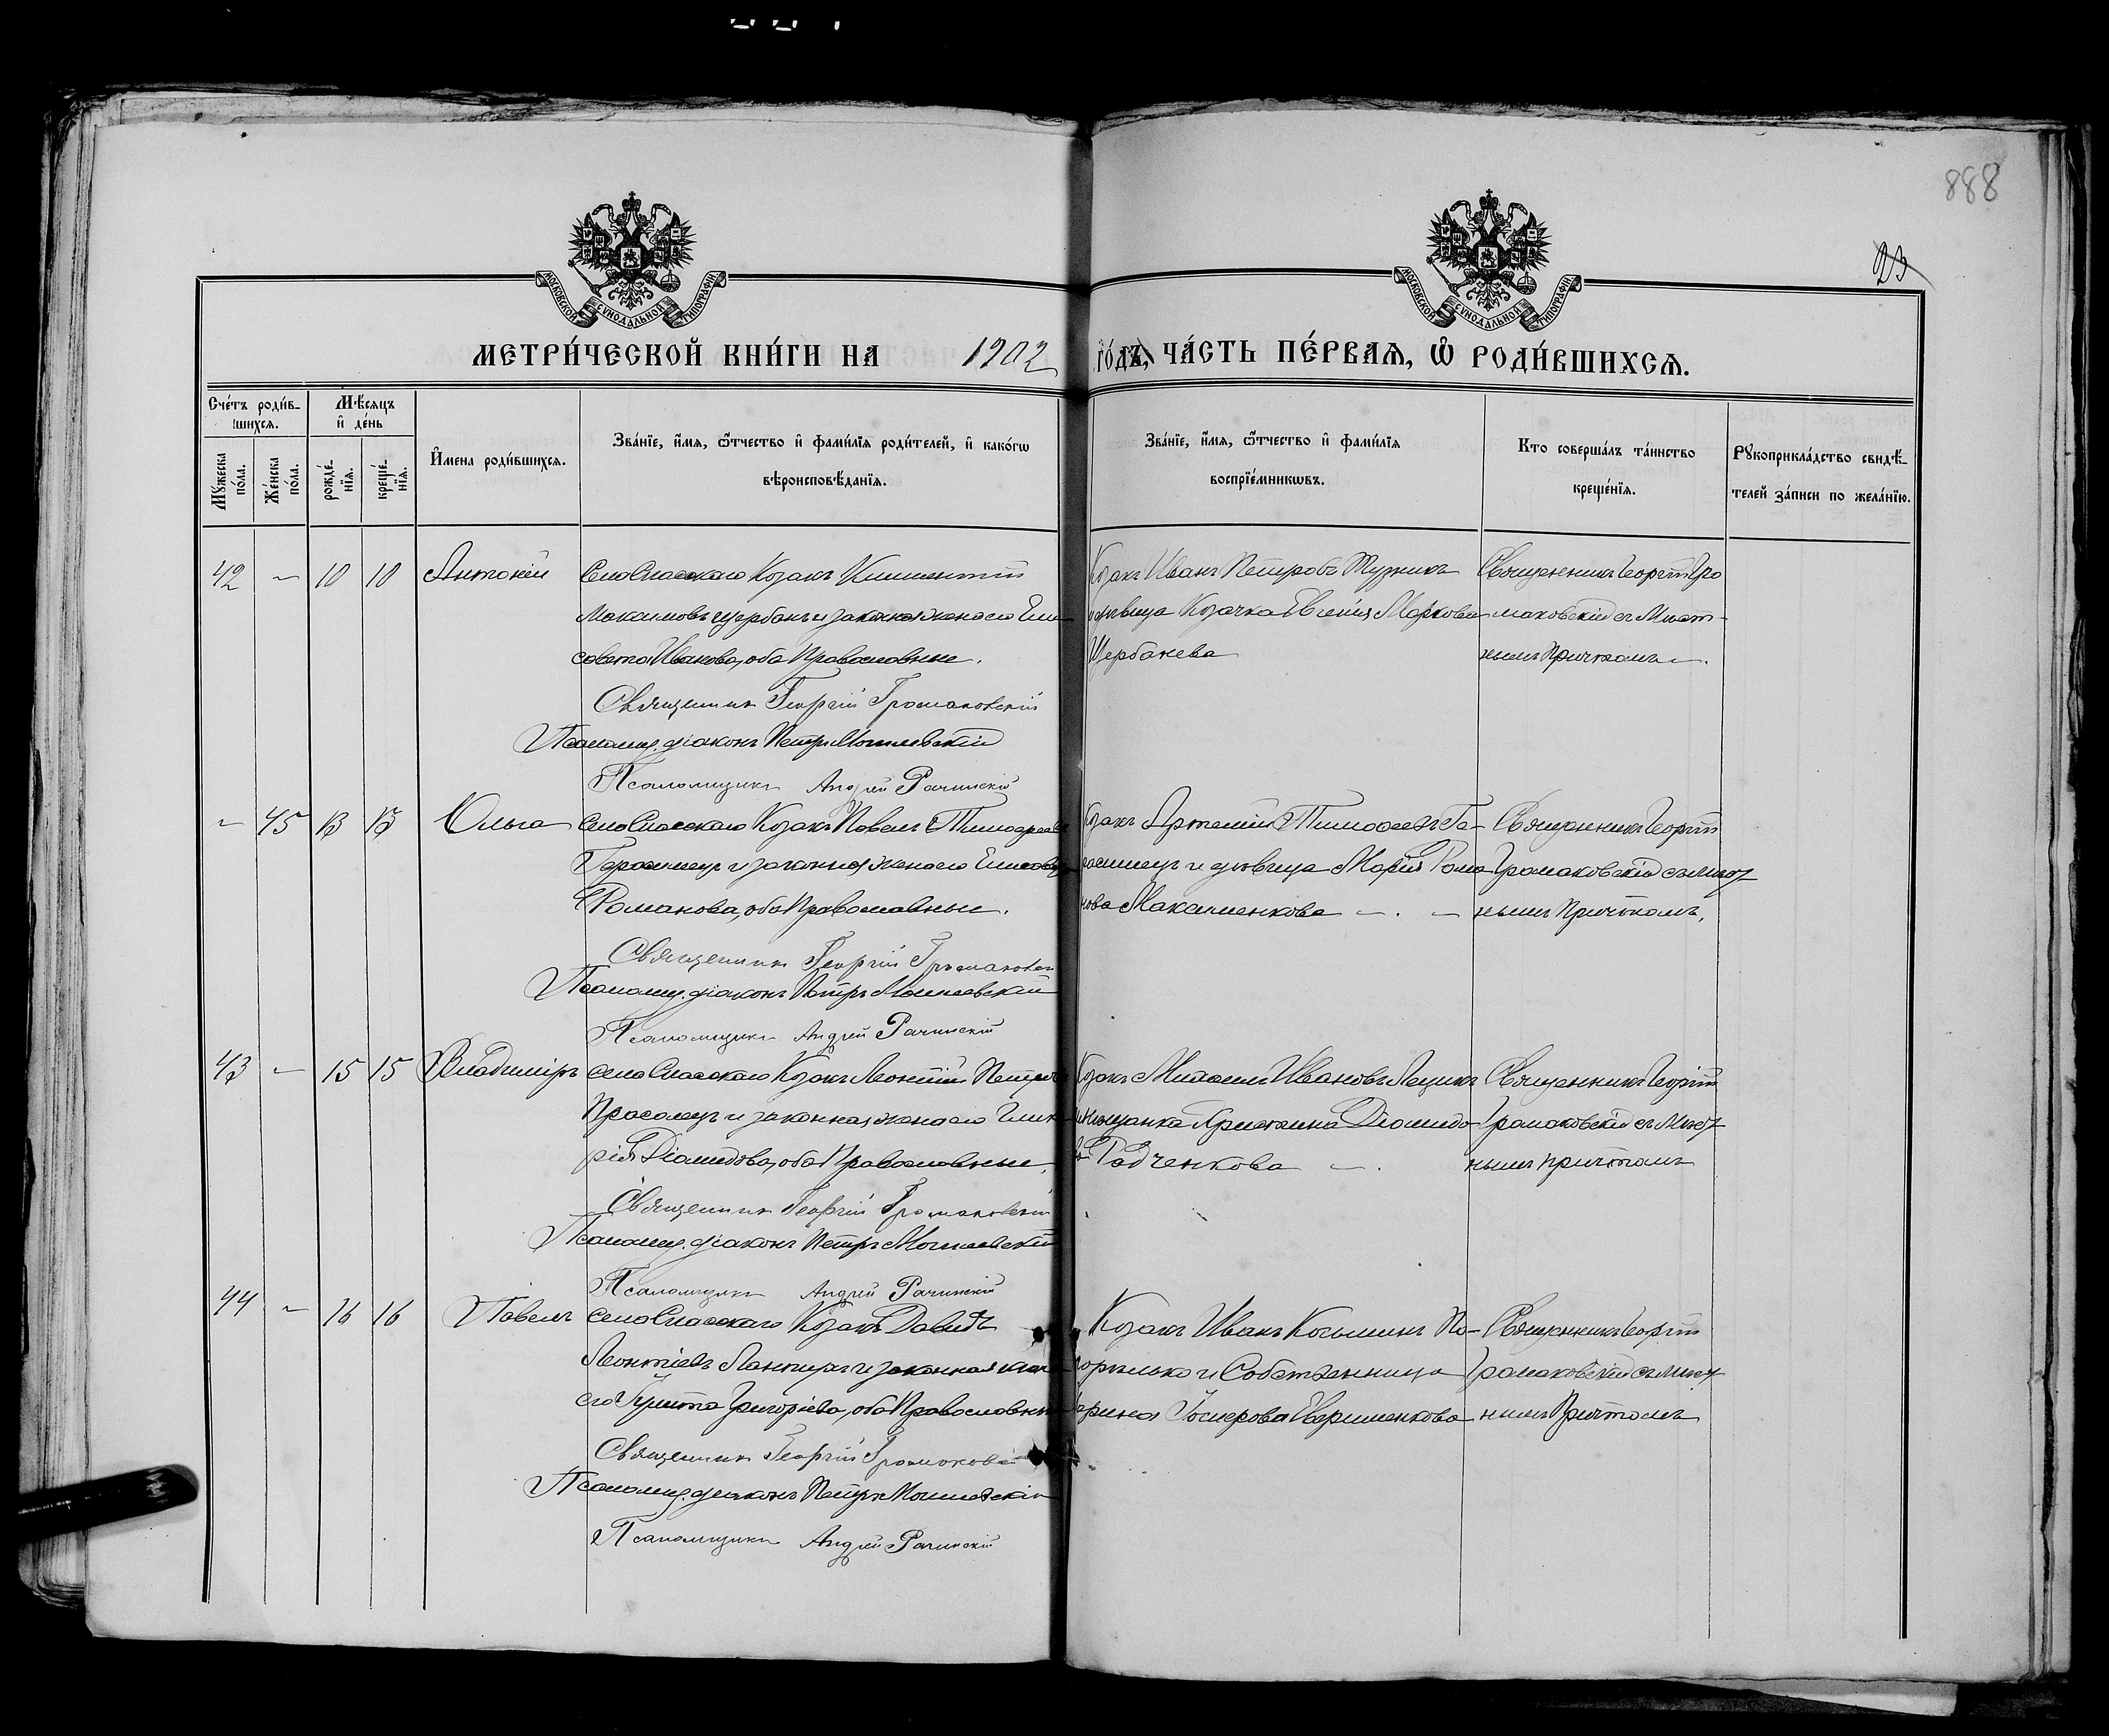 888
23
МОСКОВСКОЙ СѴНОДАЛЬНОЙ ТИПОГРАФІИ
МОСКОВСКОЙ СѴНОДАЛЬНОЙ ТИПОГРАФІИ
МЕТРИ́ЧЕСКОЙ КНИ́ГИ НА 1902 ГО́ДЪ, ЧА́СТЬ ПЕ́РВАѦ, Ѽ РОДИ́ВШИХСѦ.
Сче́тъ роди́в-
шихсѧ.
Мѣ́сѧцъ
и҆ де́нь
Мꙋ́жеска
по́ла.
Же́нска
по́ла.
рожде́-
нїѧ.
креще́-
нїѧ.
И҆мена роди́вшихсѧ.
Зва́нїе, и҆́мѧ, ѻ҆́тчество и҆ фами́лїѧ роди́телей, и҆ како́гѡ
вѣроисповѣ́данїѧ.
Зва́нїе, и҆́мѧ, ѻ҆́тчество и҆ фами́лїѧ
воспрїе́мникѡвъ.
Кто соверша́лъ та́инство
креще́нїѧ.
Рꙋкоприкла́дство свидѣ́-
телей за́писи по жела́нїю.
42 – 10 10 Антоній
Села Спасскаго Козакъ Климентій
Максимовъ Щербанъ и законная жена его Ели-
савета Иванова, оба Православные.
Священникъ Георгій Громаковскій
Псаломщ. діаконъ Петръ Могилевскій
Псаломщикъ Андрей Рачинскій
Козакъ Иванъ Петровъ Тужикъ
и дѣвица Козачка Евгенія Маркова
Щербанева
Священникъ Георгій Гро
маковскій съ Мѣст-
нымъ Причтомъ.
– 45 13 13 Ольга
Села Спасскаго Козакъ Павелъ Тимофеевъ
Гарасимецъ и законная жена его Елисавета
Романова, оба Православные.
Священникъ Георгій Громаковскій
Псаломщ. діаконъ Петръ Могилевскій
Псаломщикъ Андрей Рачинскій
Козакъ Артемій Тимофеевъ Га-
расимецъ и дѣвица Марія Рома
нова Максименкова
Священникъ Георгій
Громаковскій съ мѣст
нымъ Причтомъ.
43 – 15 15 Владиміръ
Села Спасскаго Козакъ Леонтій Петровъ
Прасолецъ и законная жена его Глике
рія Діамидова, оба Православные.
Священникъ Георгій Громаковскій
Псаломщ. діаконъ Петръ Могилевскій
Псаломщикъ Андрей Рачинскій
Козакъ Михаилъ Ивановъ Лещикъ
и мѣщанка Христина Діамидо-
ва Радченкова
Священникъ Георгій
Громаковскій съ Мѣст
нымъ причтомъ
44 – 16 16 Павелъ
Села Спасскаго Козакъ Давидъ
Леонтіевъ Лантиръ и законная жена
его Улита Григоріева, оба Православные
Священникъ Георгій Громаковскій
Псаломщ. діаконъ Петръ Могилевскій
Псаломщикъ Андрей Рачинскій
Козакъ Иванъ Козьминъ По-
горѣлько и Собственница
Ефименкова
Священникъ Георгій
Громаковскій съ мѣст
нымъ Причтомъ